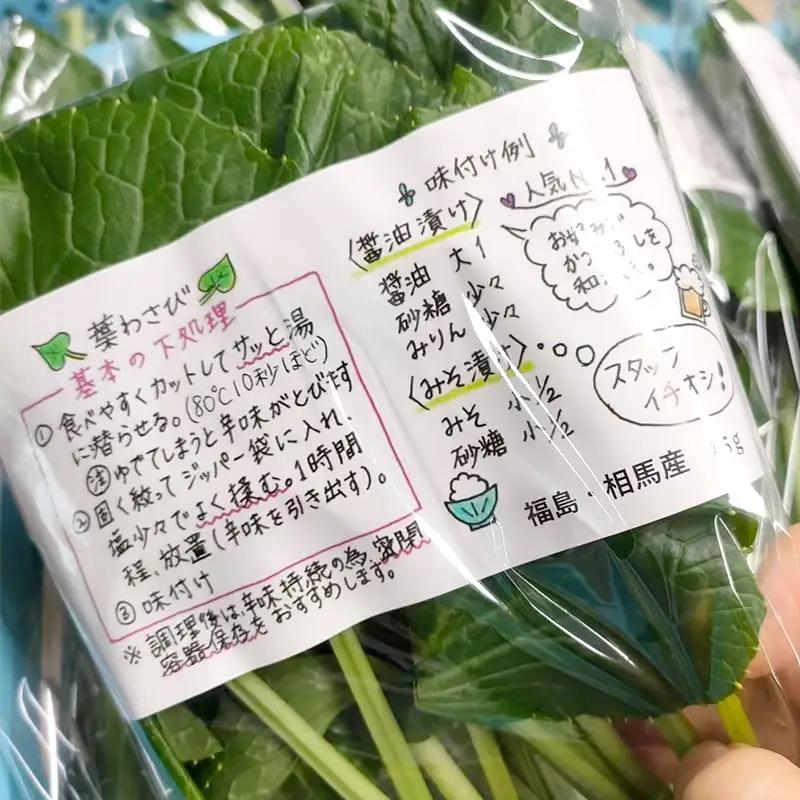 葉わさび
基本の下処理
① 食べやすくカットしてサッと湯
に潜らせる。(80℃10秒ほど)
注 ゆでてしまうと辛味がとびます
② 固く絞ってジッパー袋に入れ、
塩少々でよく揉む。1時間
程、放置(辛味を引き出す)。
③ 味付け
※調理後は、辛味持続の為、密閉
容器保存をおすすめします。
味付け例
〈醤油漬け〉
醤油 大1
砂糖 少々
みりん 少々
〈みそ漬け〉
みそ 小1/2
砂糖 小1/2
人気No.1
スタッフ
イチオシ!
福島・相馬産